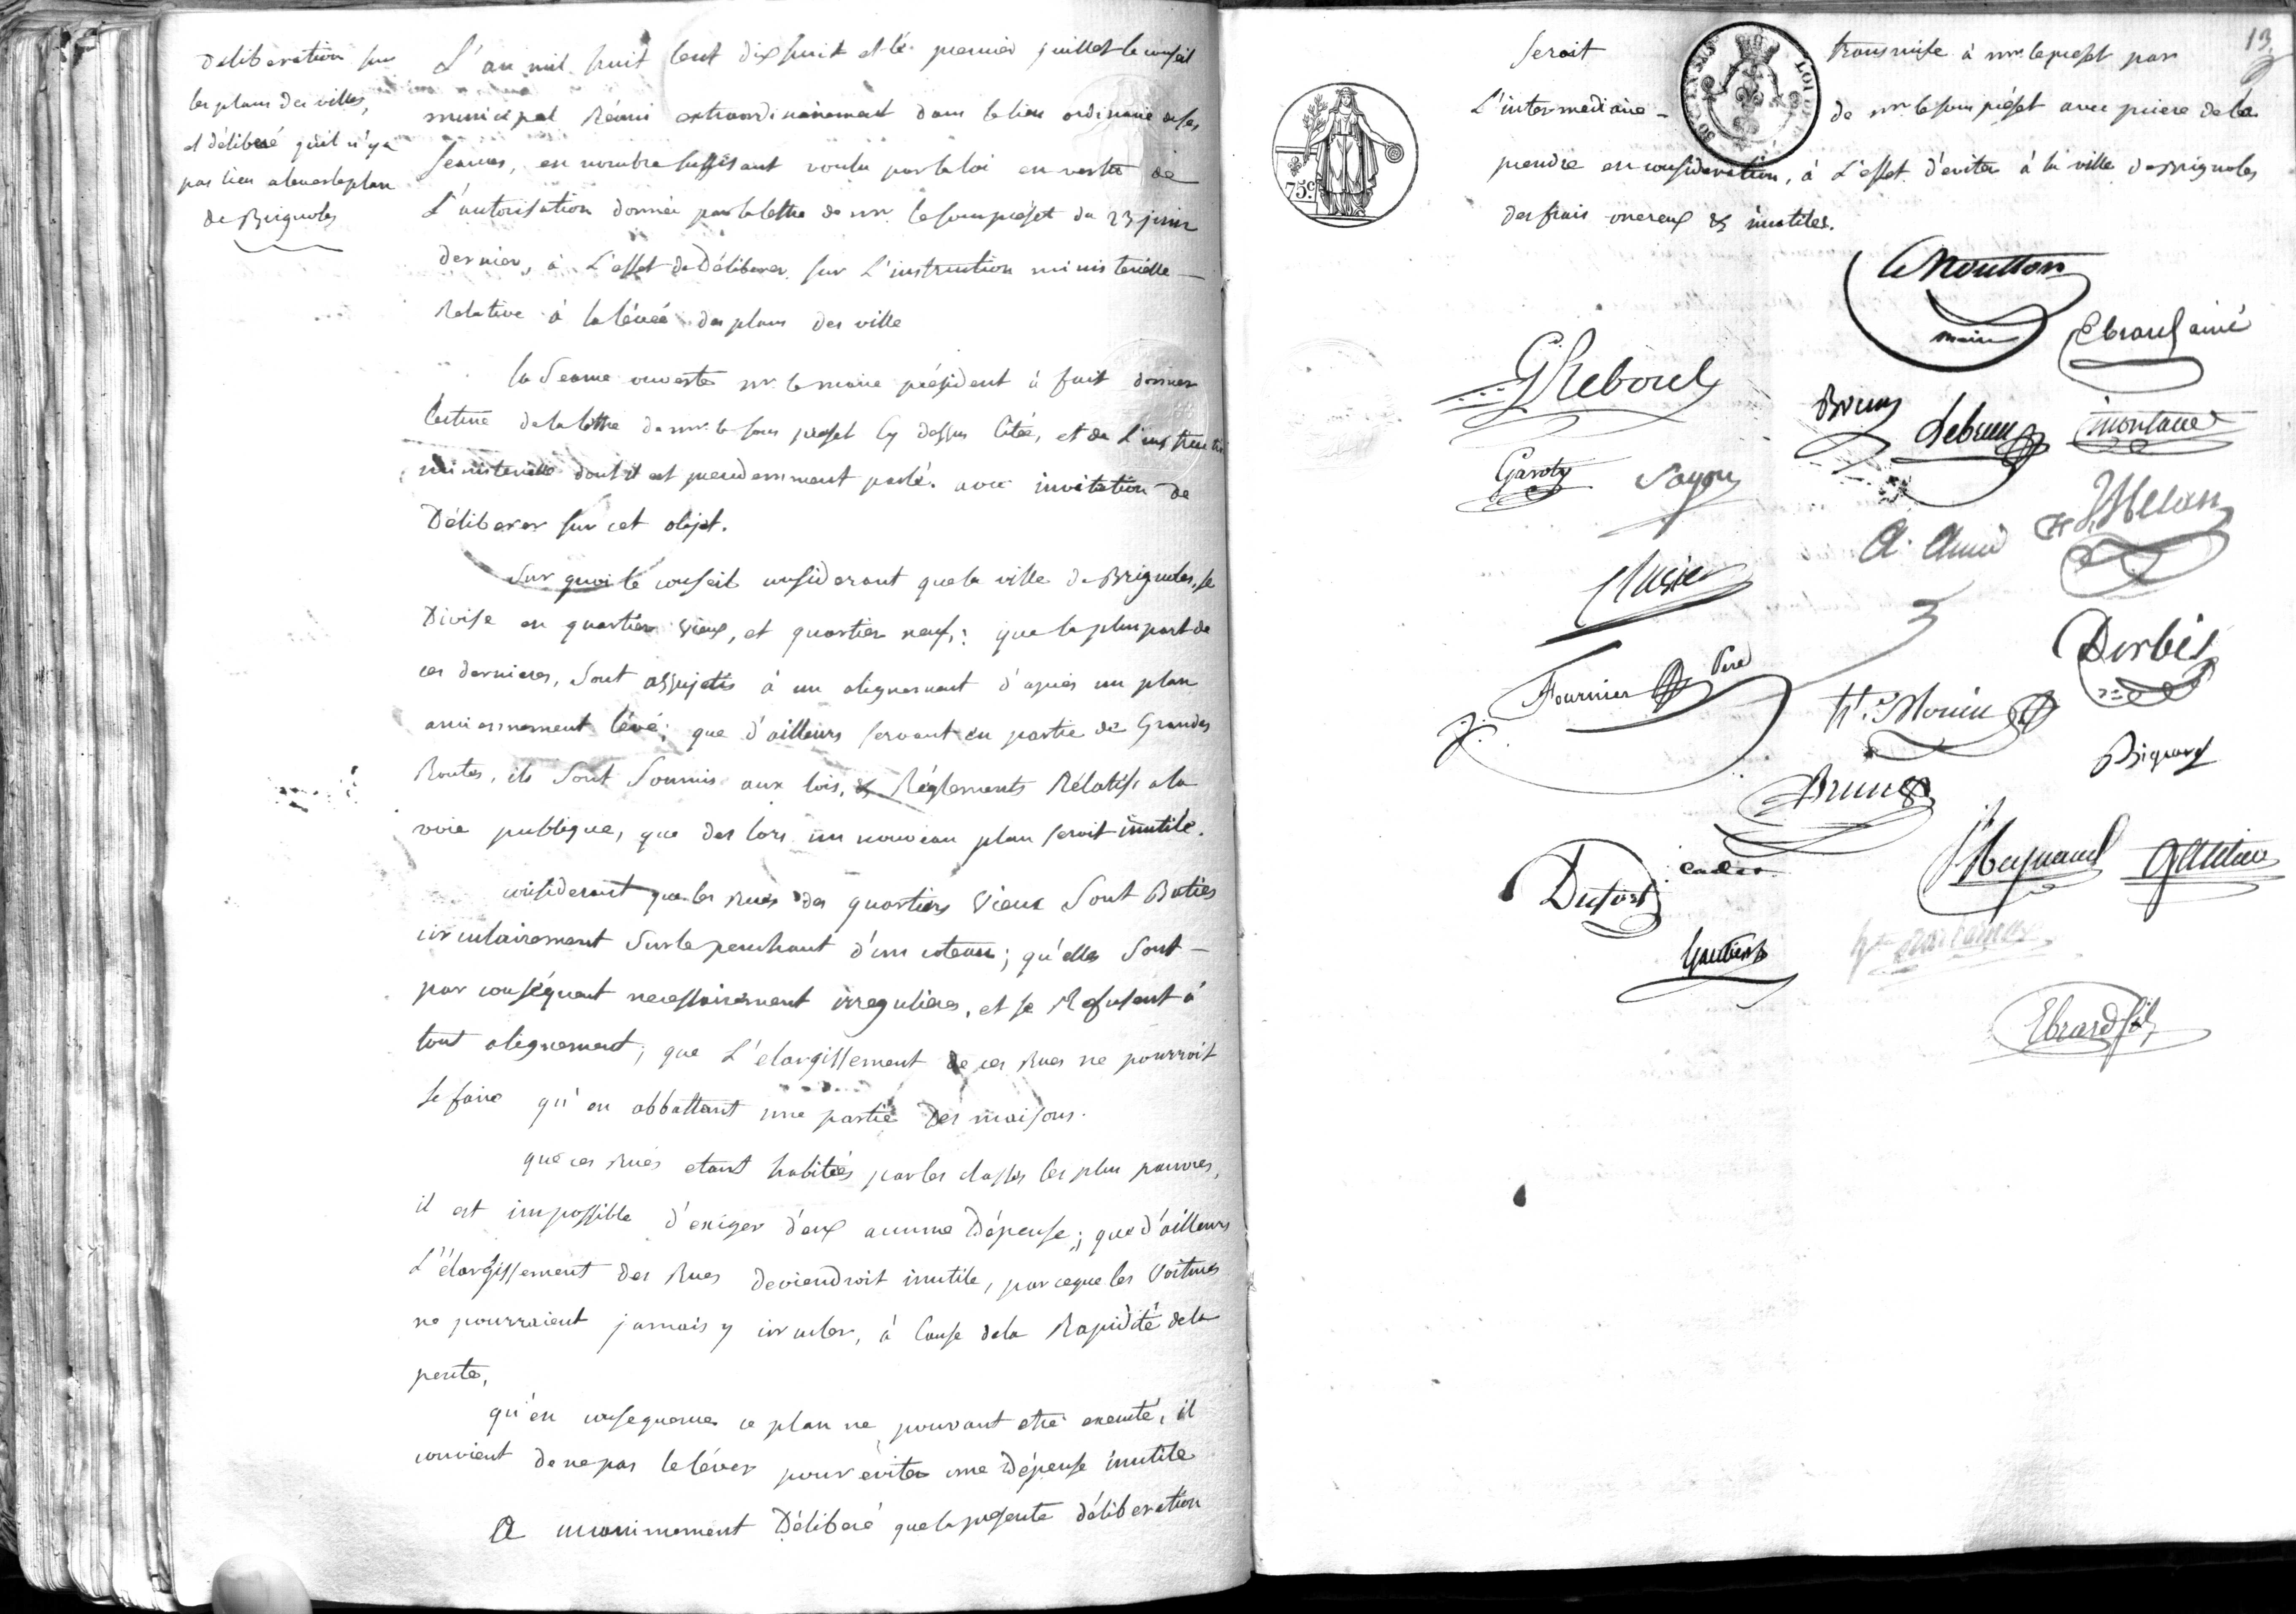 Deliberation sur
les plans des villes,
et délibéré qu'il n'y a
pas lieu a lever le plan
de Brignoles
L'an mil huit cent dix huit et le premier juillet le conseil
municipal Réuni extraordinairement dans le lieu ordinaire de ses
seances, en nombre suffisant voulu par la loi en vertu de
L'autorisation donnée par la lettre de mr. le sous préfet du 23 juin
dernier, à L'effet de Déliberer sur L'instruction ministerielle
Relative à la lévée des plans des ville
la Seance ouverte mr. le maire président à fait donner
lecture de la lettre de mr. le sous prefet cy dessus citée, et de L'instruction
ministerielle dont il est precedemment parlé. avec invitation de
Déliberer sur cet objet.
Sur quoi le conseil considerant que la ville de Brignoles, se
Divise en quartier vieux, et quartier neuf,: que la plus part de
ces derniers, sont assujetis à un alignement d'après un plan
anciennement lévé; que d'ailleurs servant en partie de Grandes
Routes, ils Sont Soumis aux lois, & Réglements Rélatifs a la
voie publique, que des lors un nouveau plan seroit inutile.
considerant que les Rues des quartiers vieux Sont Baties
circulairement Sur le penchant d'un coteau; qu'elles Sont
par conséquent necessairement irregulieres, et se Refusent à
tout alignement; que L'elargissement de ces Rues ne pourroit
se faire qu'en abbattant une partie des maisons.
que ces Rues etant habitées par les classes les plus pauvres,
il est impossible d'exiger d'eux aucune Dépense; que d'ailleurs
L'élargissement des Rues deviendroit inutile, parceque les Voitures
ne pourraient jamais y circuler, à Cause de la Rapidité de la
pente,
qu'en consequence ce plan ne pouvant etre executé, il
convient de ne pas le léver pour eviter une Dépense inutile
A unanimement Délibéré que la présente déliberation
13
Seroit transmise à mr. le prefet par
L'intermediaire de mr. le sous préfet avec priere de la
prendre en consideration, à L'effet d'eviter à la ville de Brignoles
des frais onereux & inutiles.
75c.
Le Moutton
maire
Ebrard ainé
G Reboul
Brun
Lebrun
Montaud
Garoty
Sayou
Fournier Pere
Dorbes
Hte. Monin
Bigard
Brun
Dufort cadet
Maynard
Gautier
Ebrard fils